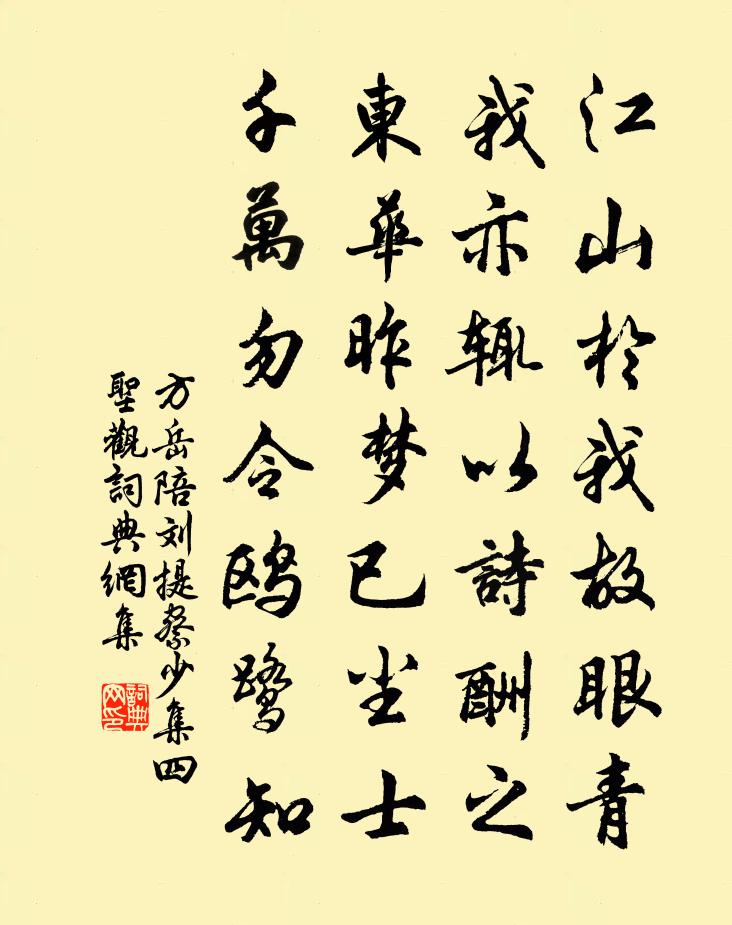 江山於我故眼青
我亦辄以詩酬之
東華昨梦已尘士
千萬勿令鸥鹭知
方岳陪刘提察少集四
聖觀詞典網集
詞典网印